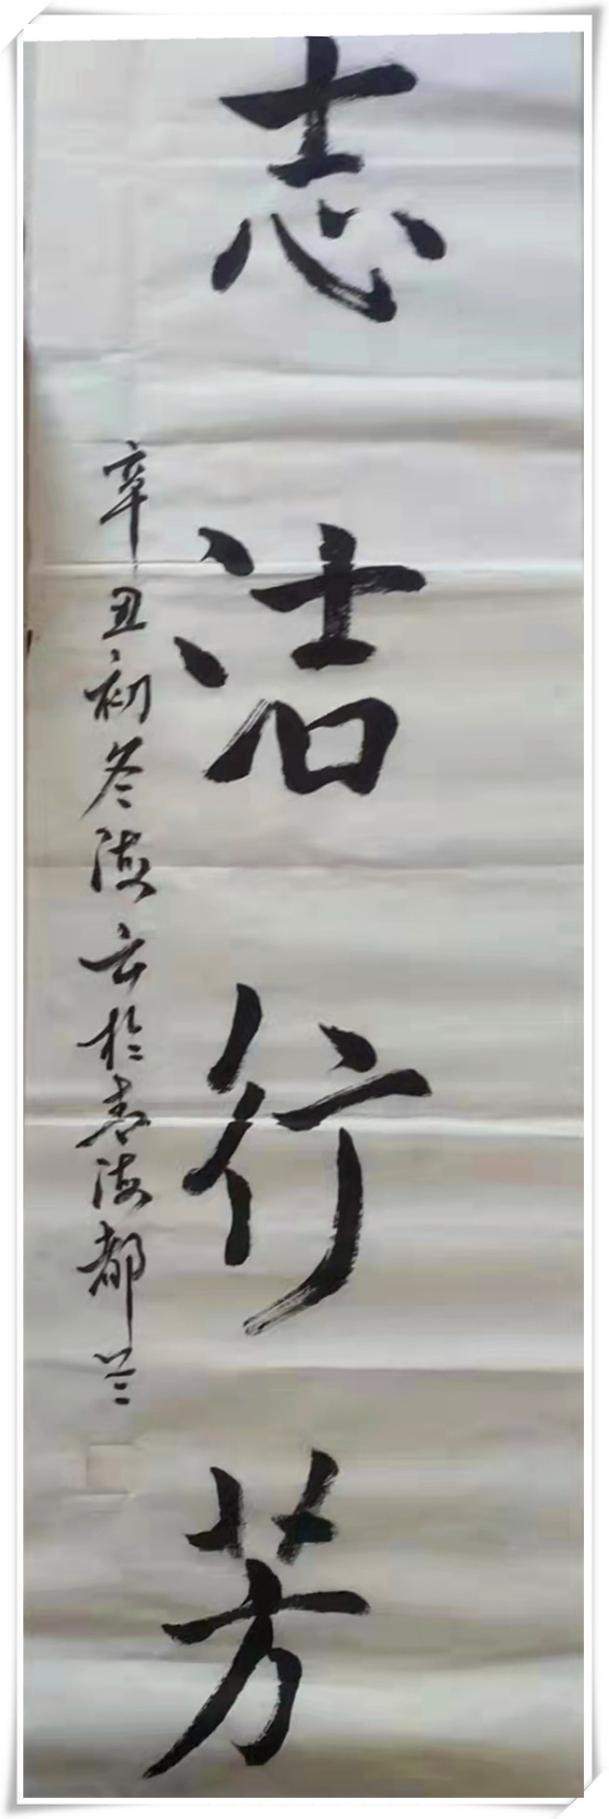 志洁行芳
辛丑初冬德云於青海都兰